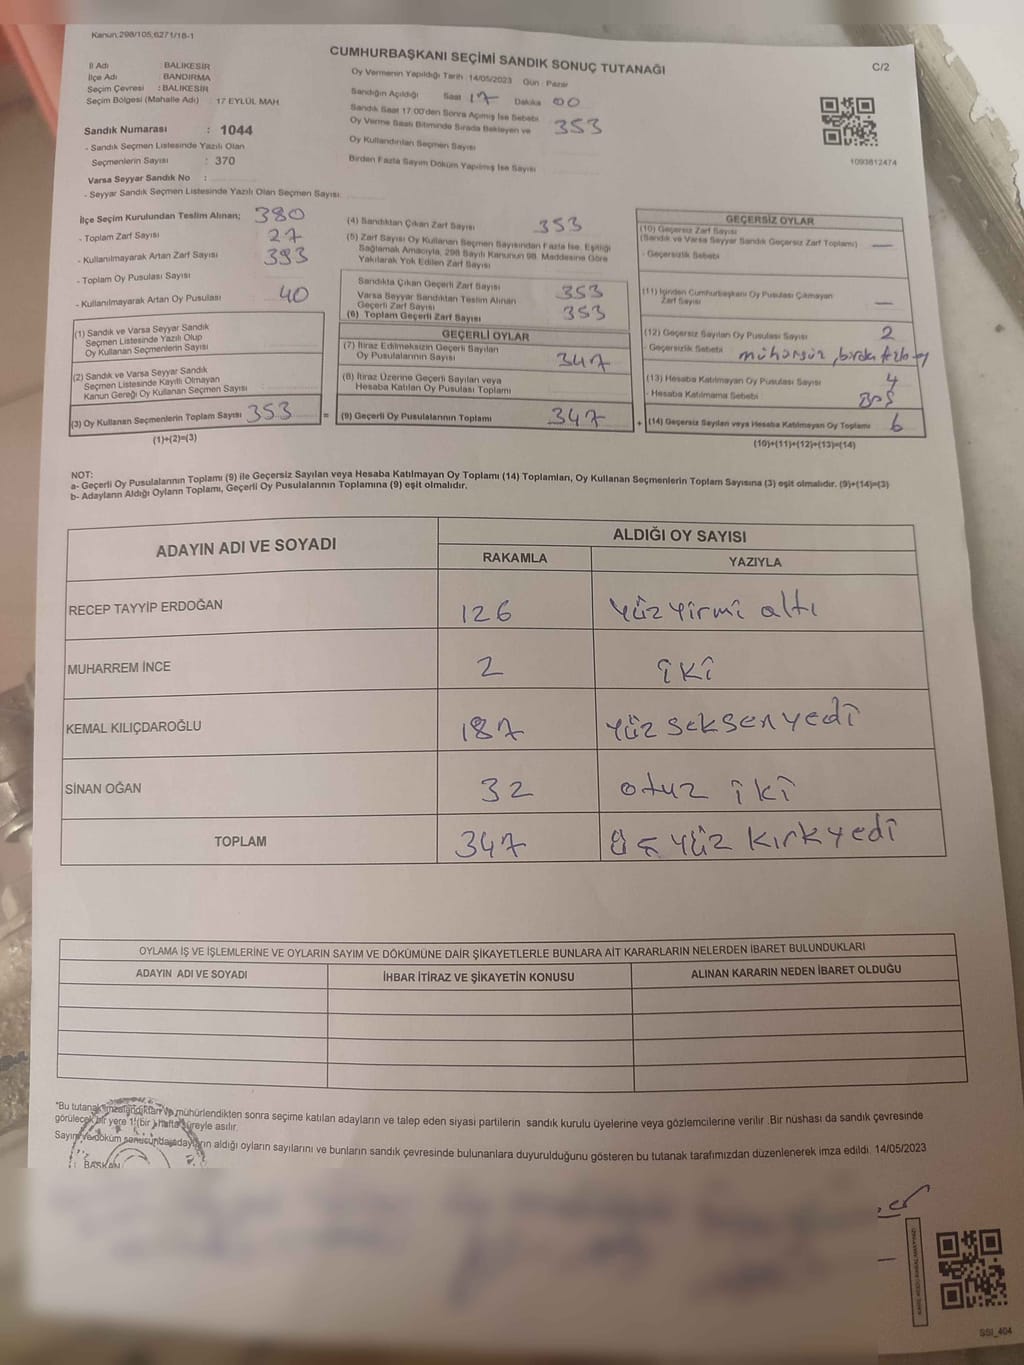 Kanun:298/105,6271/18-1
CUMHURBAŞKANI SEÇİMİ SANDIK SONUÇ TUTANAĞI
C/2
İl Adı : BALIKESİR
İlçe Adı : BANDIRMA
Seçim Çevresi : BALIKESİR
Seçim Bölgesi (Mahalle Adı) : 17 EYLÜL MAH.
Sandık Numarası : 1044
- Sandık Seçmen Listesinde Yazılı Olan
Seçmenlerin Sayısı : 370
Varsa Seyyar Sandık No :
- Seyyar Sandık Seçmen Listesinde Yazılı Olan Seçmen Sayısı:
Oy Vermenin Yapıldığı Tarih : 14/05/2023 Gün : Pazar
Sandığın Açıldığı Saat 17 Dakika 00
Sandık Saat 17:00'den Sonra Açılmış İse Sebebi
Oy Verme Saati Bitiminde Sırada Bekleyen ve 353
Oy Kullandırılan Seçmen Sayısı
Birden Fazla Sayım Döküm Yapılmış İse Sayısı
1093812474
İlçe Seçim Kurulundan Teslim Alınan; 380
- Toplam Zarf Sayısı 27
- Kullanılmayarak Artan Zarf Sayısı 393
- Toplam Oy Pusulası Sayısı
- Kullanılmayarak Artan Oy Pusulası 40
(1) Sandık ve Varsa Seyyar Sandık
Seçmen Listesinde Yazılı Olup
Oy Kullanan Seçmenlerin Sayısı
(2) Sandık ve Varsa Seyyar Sandık
Seçmen Listesinde Kayıtlı Olmayan
Kanun Gereği Oy Kullanan Seçmen Sayısı
(3) Oy Kullanan Seçmenlerin Toplam Sayısı 353
(1)+(2)=(3)
(4) Sandıktan Çıkan Zarf Sayısı 353
(5) Zarf Sayısı Oy Kullanan Seçmen Sayısından Fazla İse, Eşitliği
Sağlamak Amacıyla, 298 Sayılı Kanunun 98. Maddesine Göre
Yakılarak Yok Edilen Zarf Sayısı
Sandıkta Çıkan Geçerli Zarf Sayısı 353
Varsa Seyyar Sandıktan Teslim Alınan
Geçerli Zarf Sayısı
(6) Toplam Geçerli Zarf Sayısı 353
GEÇERLİ OYLAR
(7) İtiraz Edilmeksizin Geçerli Sayılan
Oy Pusulalarının Sayısı 347
(8) İtiraz Üzerine Geçerli Sayılan veya
Hesaba Katılan Oy Pusulası Toplamı
= (9) Geçerli Oy Pusulalarının Toplamı 347
GEÇERSİZ OYLAR
(10) Geçersiz Zarf Sayısı
(Sandık ve Varsa Seyyar Sandık Geçersiz Zarf Toplamı) —
- Geçersizlik Sebebi
(11) İçinden Cumhurbaşkanı Oy Pusulası Çıkmayan
Zarf Sayısı —
(12) Geçersiz Sayılan Oy Pusulası Sayısı 2
- Geçersizlik Sebebi mühürsüz,
(13) Hesaba Katılmayan Oy Pusulası Sayısı 4
- Hesaba Katılmama Sebebi Boş
+ (14) Geçersiz Sayılan veya Hesaba Katılmayan Oy Toplamı 6
(10)+(11)+(12)+(13)=(14)
NOT:
a- Geçerli Oy Pusulalarının Toplamı (9) ile Geçersiz Sayılan veya Hesaba Katılmayan Oy Toplamı (14) Toplamları, Oy Kullanan Seçmenlerin Toplam Sayısına (3) eşit olmalıdır. (9)+(14)=(3)
b- Adayların Aldığı Oyların Toplamı, Geçerli Oy Pusulalarının Toplamına (9) eşit olmalıdır.
ADAYIN ADI VE SOYADI
ALDIĞI OY SAYISI
RAKAMLA YAZIYLA
RECEP TAYYİP ERDOĞAN 126 Yüz yirmi altı
MUHARREM İNCE 2 iki
KEMAL KILIÇDAROĞLU 187 Yüz seksen yedi
SİNAN OĞAN 32 otuz iki
TOPLAM 347 üç yüz kırk yedi
OYLAMA İŞ VE İŞLEMLERİNE VE OYLARIN SAYIM VE DÖKÜMÜNE DAİR ŞİKAYETLERLE BUNLARA AİT KARARLARIN NELERDEN İBARET BULUNDUKLARI
ADAYIN ADI VE SOYADI İHBAR İTİRAZ VE ŞİKAYETİN KONUSU ALINAN KARARIN NEDEN İBARET OLDUĞU
*Bu tutanak imzalandıktan ve mühürlendikten sonra seçime katılan adayların ve talep eden siyasi partilerin sandık kurulu üyelerine veya gözlemcilerine verilir. Bir nüshası da sandık çevresinde
görülecek bir yere 1 (bir) hafta süreyle asılır.
Sayım ve döküm sonucunda adayların aldığı oyların sayılarını ve bunların sandık çevresinde bulunanlara duyurulduğunu gösteren bu tutanak tarafımızdan düzenlenerek imza edildi. 14/05/2023
BAŞKAN
SSI_404